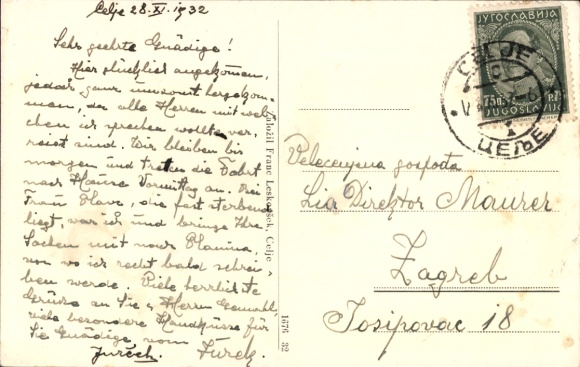 Celje 28.XI.1932
Sehr geehrte Gnädige!
Hier glücklich angekommen,
jedoch ganz umsonst hergekom-
men, da alle Herren mit wel-
chen ich sprechen wollte, ver-
reist sind. Wir bleiben bis
morgen und treten die Fahrt
nach Hause Vormittag an. Bei
Frau Plave, die fast sterbend
liegt, war ich und bringe Ihre
Sachen mit nach Planina,
von wo ich recht bald schrei-
ben werde. Viele herrlichste
Grüsse an Sie, Herrn Gemahl,
viele besondere Handküsse für
Sie Gnädige vom
Jurček. Jurek.
Založil Franc Leskovšek, Celje
1676 32
ЈУГОСЛАВИЈА
75 P. 75
JUGOSLAVIJA
CELJE
ЦЕЉЕ
Velecenjena gospođa
Lia Direktor Maurer
Zagreb
Josipovac 18